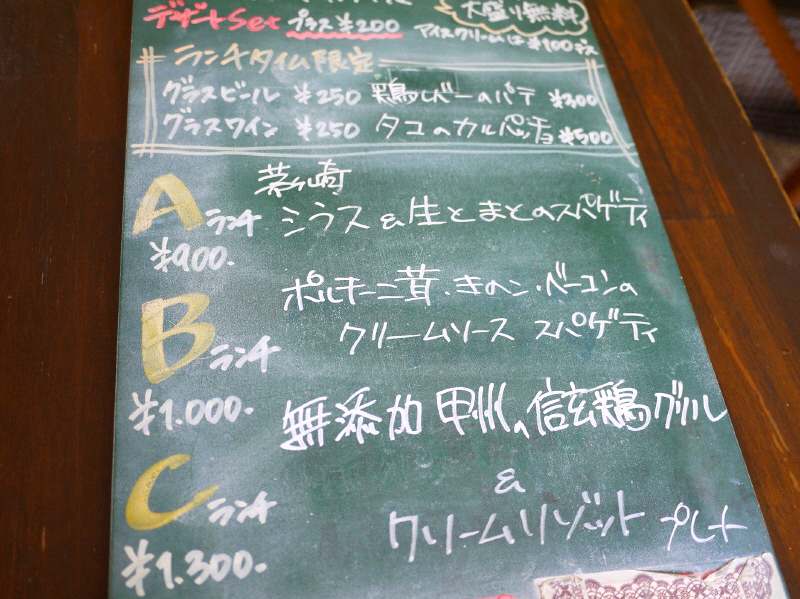 大盛り無料
デザートSet プラス¥200 アイスクリームは¥100プラス
ランチタイム限定
グラスビール ¥250 鶏レバーのパテ ¥300
グラスワイン ¥250 タコのカルパッチョ ¥500
A ランチ ¥900.
茅ヶ崎
シラス&生とまとのスパゲティ
B ランチ ¥1.000.
ポルチーニ茸・きのこ・ベーコンの
クリームソース スパゲティ
C ランチ ¥1.300.
無添加 甲州、信玄鶏グリル
&
クリームリゾット プレート